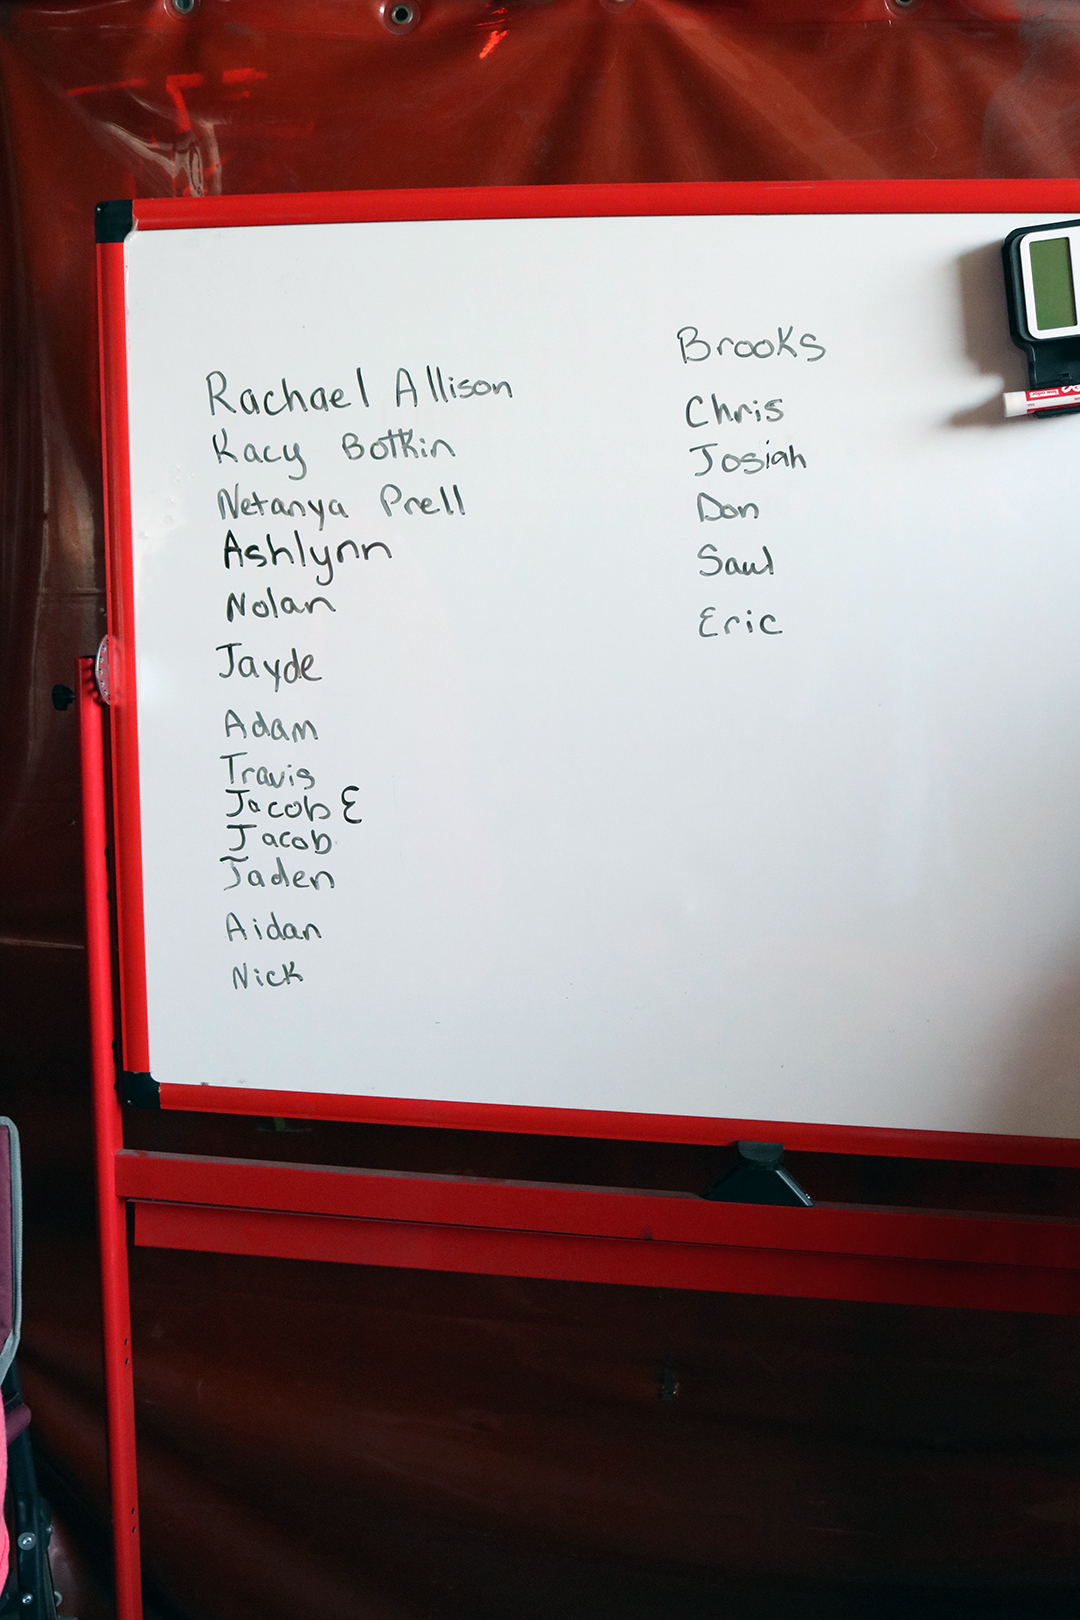 Rachael Allison
Kacy Botkin
Netanya Prell
Ashlynn
Nolan
Jayde
Adam
Travis
Jacob E
Jacob
Jaden
Aidan
Nick
Brooks
Chris
Josiah
Don
Saul
Eric